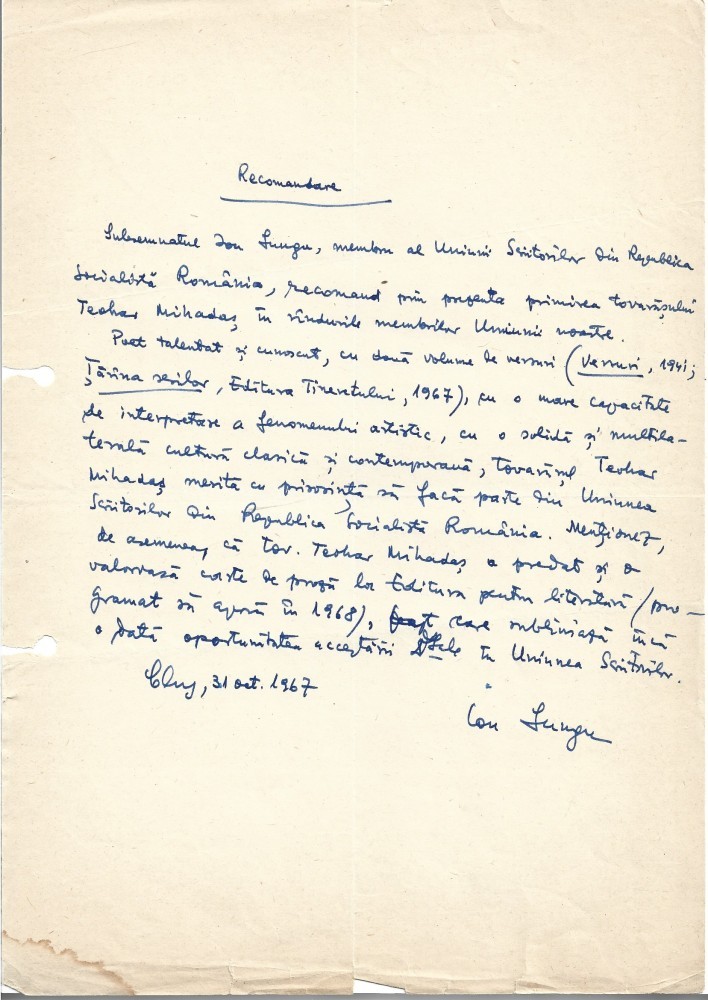 Recomandare
Subsemnatul Ion Lungu, membru al Uniunii Scriitorilor din Republica
Socialistă România, recomand prin prezenta primirea tovarășului
Teohar Mihadaș în rîndurile membrilor Uniunii noastre.
Poet talentat și cunoscut, cu două volume de versuri (Versuri, 1941;
Țărîna serilor, Editura Tineretului, 1967), cu o mare capacitate
de interpretare a fenomenului artistic, cu o solidă și multila-
terală cultură clasică și contemporană, tovarășul Teohar
Mihadaș merită cu prisosință să facă parte din Uniunea
Scriitorilor din Republica Socialistă România. Menționez,
de asemenea, că tov. Teohar Mihadaș a predat și o
valoroasă carte de proză la Editura pentru literatură (pro-
gramat să apară în 1968), care subliniază încă
o dată oportunitatea acceptării Dsale în Uniunea Scriitorilor.
Cluj, 31 oct. 1967
Ion Lungu